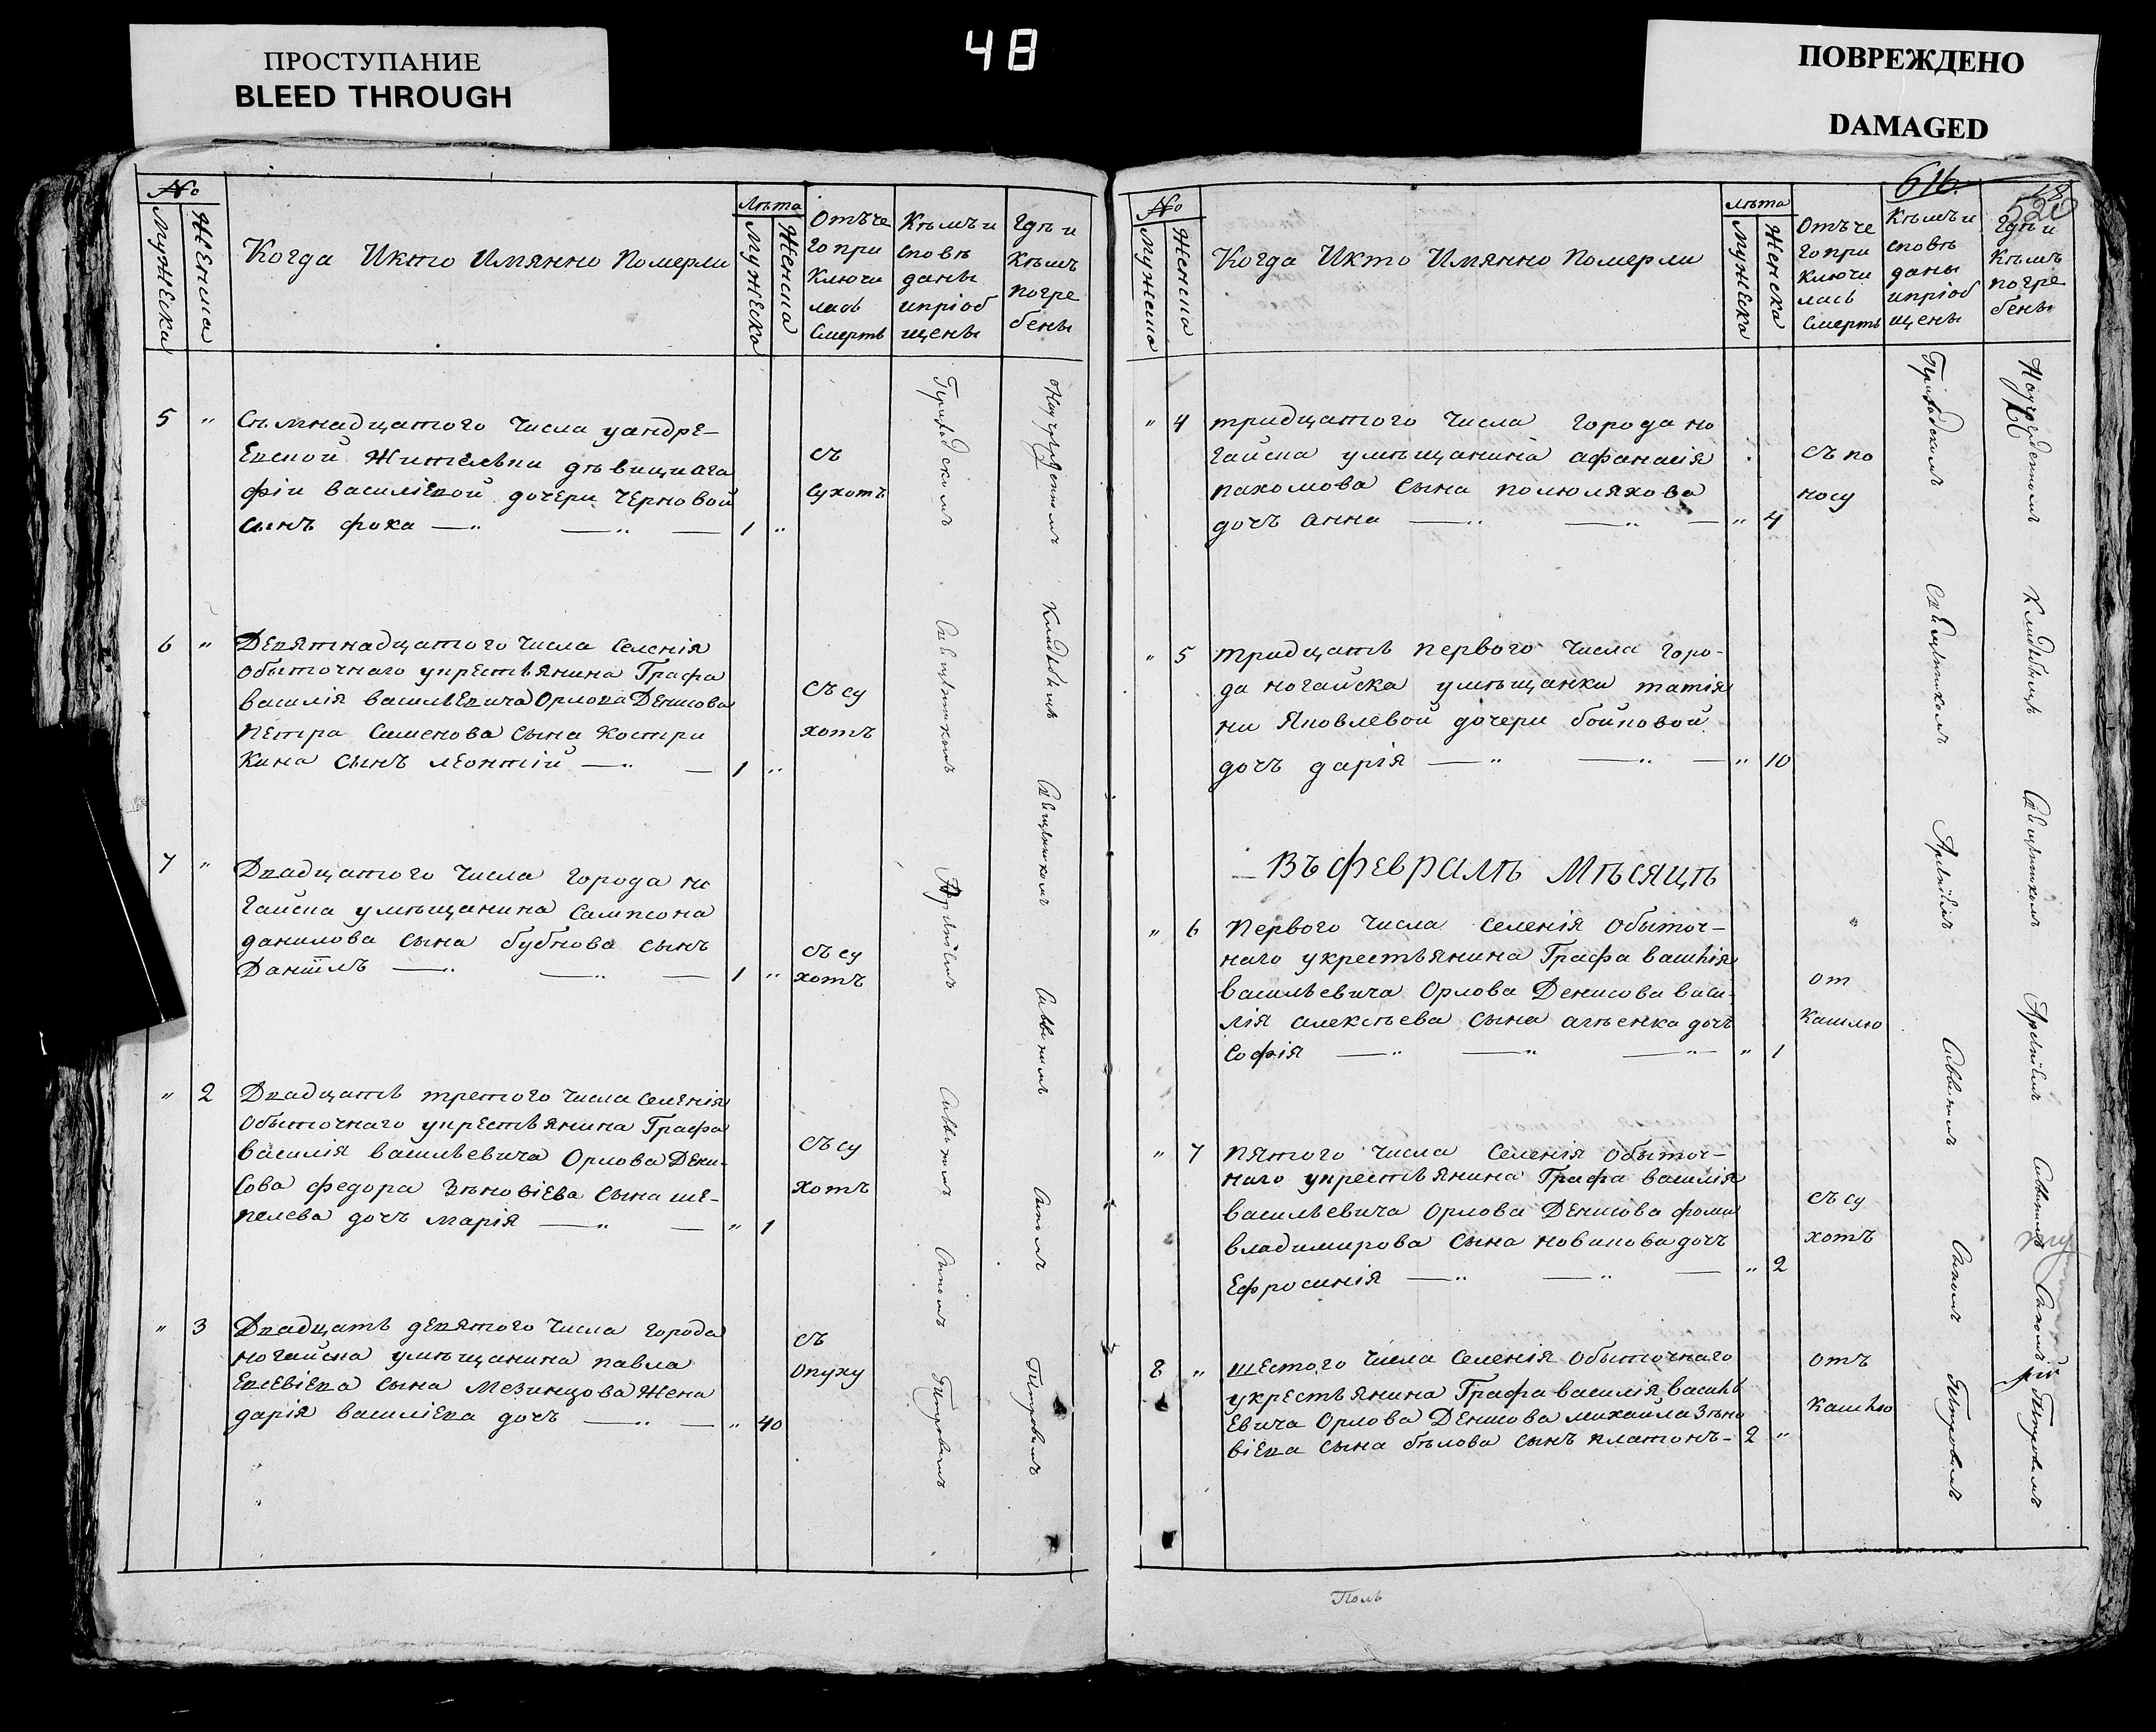 ПРОСТУПАНИЕ
BLEED THROUGH
48
ПОВРЕЖДЕНО
DAMAGED
№
Мужеска
Женска
Когда Икто Имянно Померли
Лѣта
Мужеска
Женска
Отъче
го при
Ключи
лась
Смерть
Кѣмъ и
сповѣ
даны
ипріоб
щены
Гдѣ и
Кѣмъ
погре
бены
5 "
Сѣмнадцатого Числа уандре-
Евской Жителѣки дѣвицы Ага
фіи василіевой дочери черновой
сынъ фока — " — " — 1 "
съ
сухотъ
6 "
Девятнадцатого Числа Селенія
Обыточнаго укрестьянина Графа
василія васильЕвича Орлова Денисова
петра Сименова Сына Костри
кина Сынъ леонтій — " — 1 "
Съ су
хотъ
7 "
Двадцатого Числа Города но
гайска умѣщанина Сампсона
данилова Сына бубнова Сынъ
Даніилъ — " — " — 1 "
Съ су
хотъ
" 2
Двадцать третого Числа Селенія
Обыточнаго укрестьянина Графа
василія васильевича Орлова Дени-
сова федора Зѣновіева Сына ше-
пелева дочъ марія — " — " 1
Съ су
хотъ
" 3
Двадцать девятого Числа Города
ногайска умѣщанина павла
Сына Мезинцова Жена
дарія василіева дочъ — " — " 40
съ
Опуху
Приходскимъ Священникомъ Сиввинымъ Сыномъ Петровымъ
Кладбищѣ Священникомъ Сиввинымъ Сыномъ Петровымъ
616
520
№
Мужеска
Женска
Когда Икто Имянно Померли
лѣта
Мужеска
Женска
Отъче
Го при
ключи
лась
Смерть
Кѣмъ и
сповѣ
даны
ипріоб
щены
Гдѣ и
Кѣмъ
погре
бены
" 4
тридцатого Числа Города но
гайска умѣщанина афанасія
пахомова Сына полюляхова
дочъ анна — " — " — " 4
Съ по
носу
" 5
тридцать первого Числа горо-
да ногайска умѣщанки татія
ни Яковлевой дочери бойковой
дочъ дарія — " — " — " 10
Въ февралѣ Мѣсяцѣ
" 6
первого Числа Селенія Обыточ-
наго укрестьянина Графа василія
васильевича Орлова Денисова васи-
лія алексѣева Сына дочъ
Софія — " — " — " — " 1
от
Кашлю
" 7
пятого Числа Селенія Обыточ-
наго укрестьянина Графа василія
васильевича Орлова Денисова фомы
владимирова Сына новикова дочъ
Ефросинія — " — " — " 2
Съ су
хотъ
8 "
шестого Числа Селенія Обыточнаго
укрестьянина Графа василія василь
Евича Орлова Денисова михаила Зѣно
вієва Сына бѣлова Сынъ платонъ- 2 "
Отъ
Кашлю
Приходскимъ Священникомъ Сиввинымъ Сыномъ Петровымъ
Кладбищѣ Священникомъ Сиввинымъ Сыномъ Петровымъ